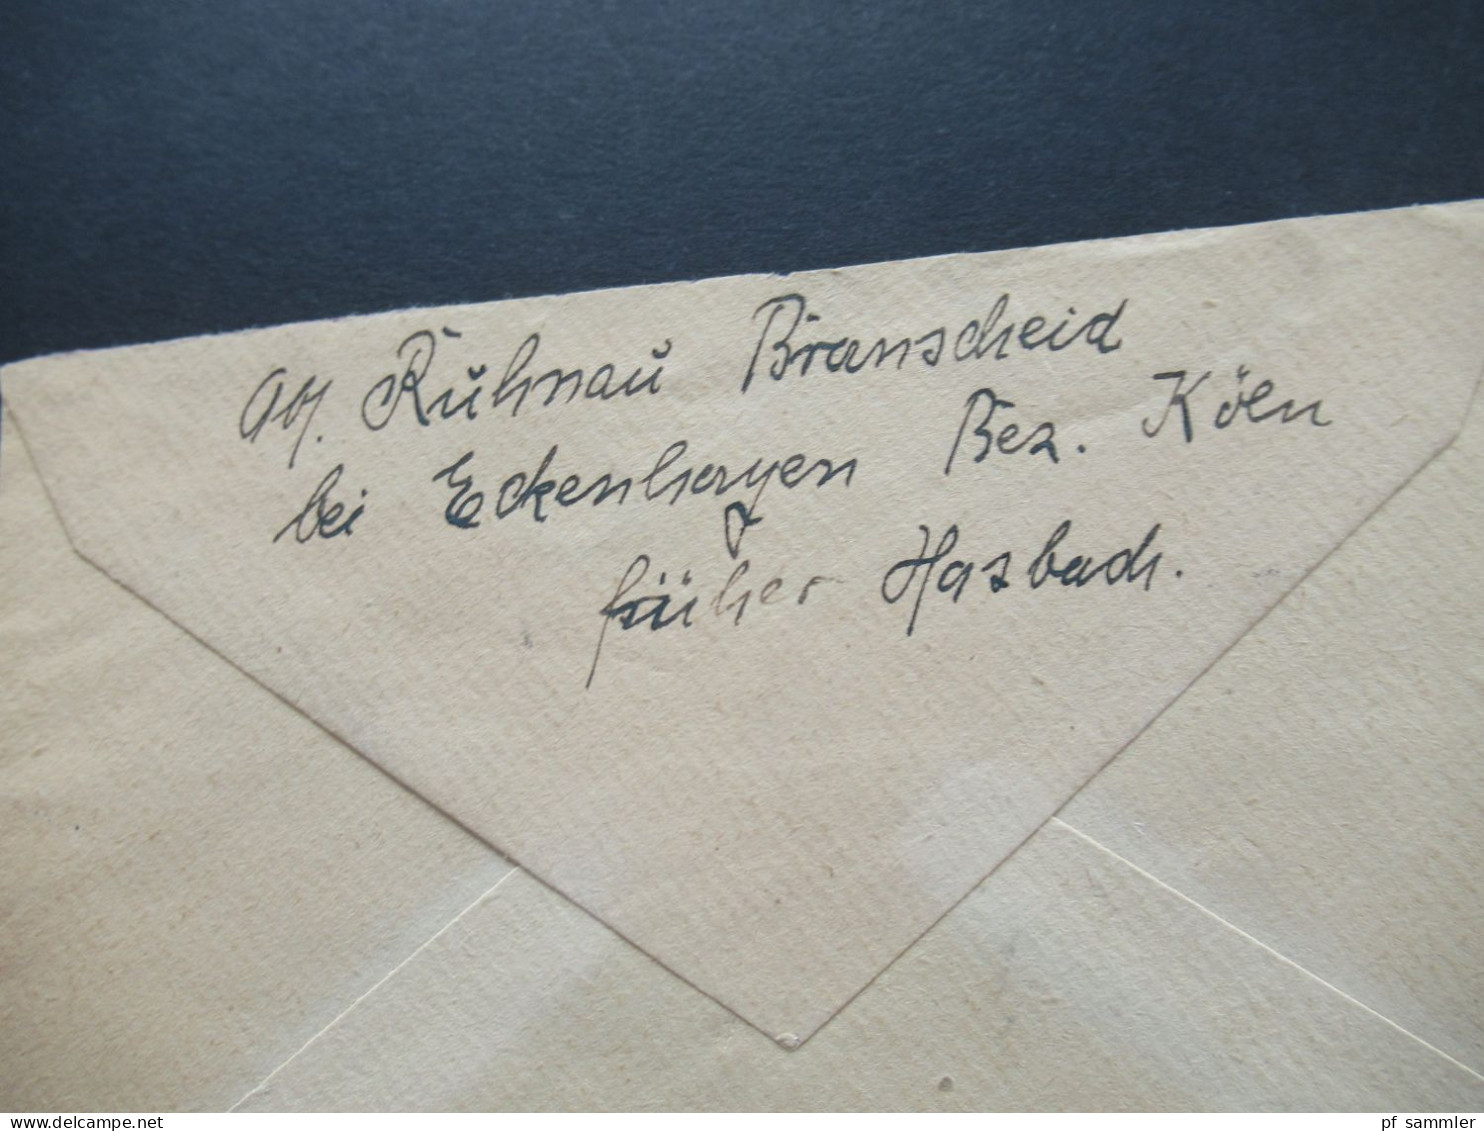 Abs. Rühnau Branscheid
bei Eckenhagen Bez. Köln
früher Hasbach.
www.delcampe.net
pf sammler